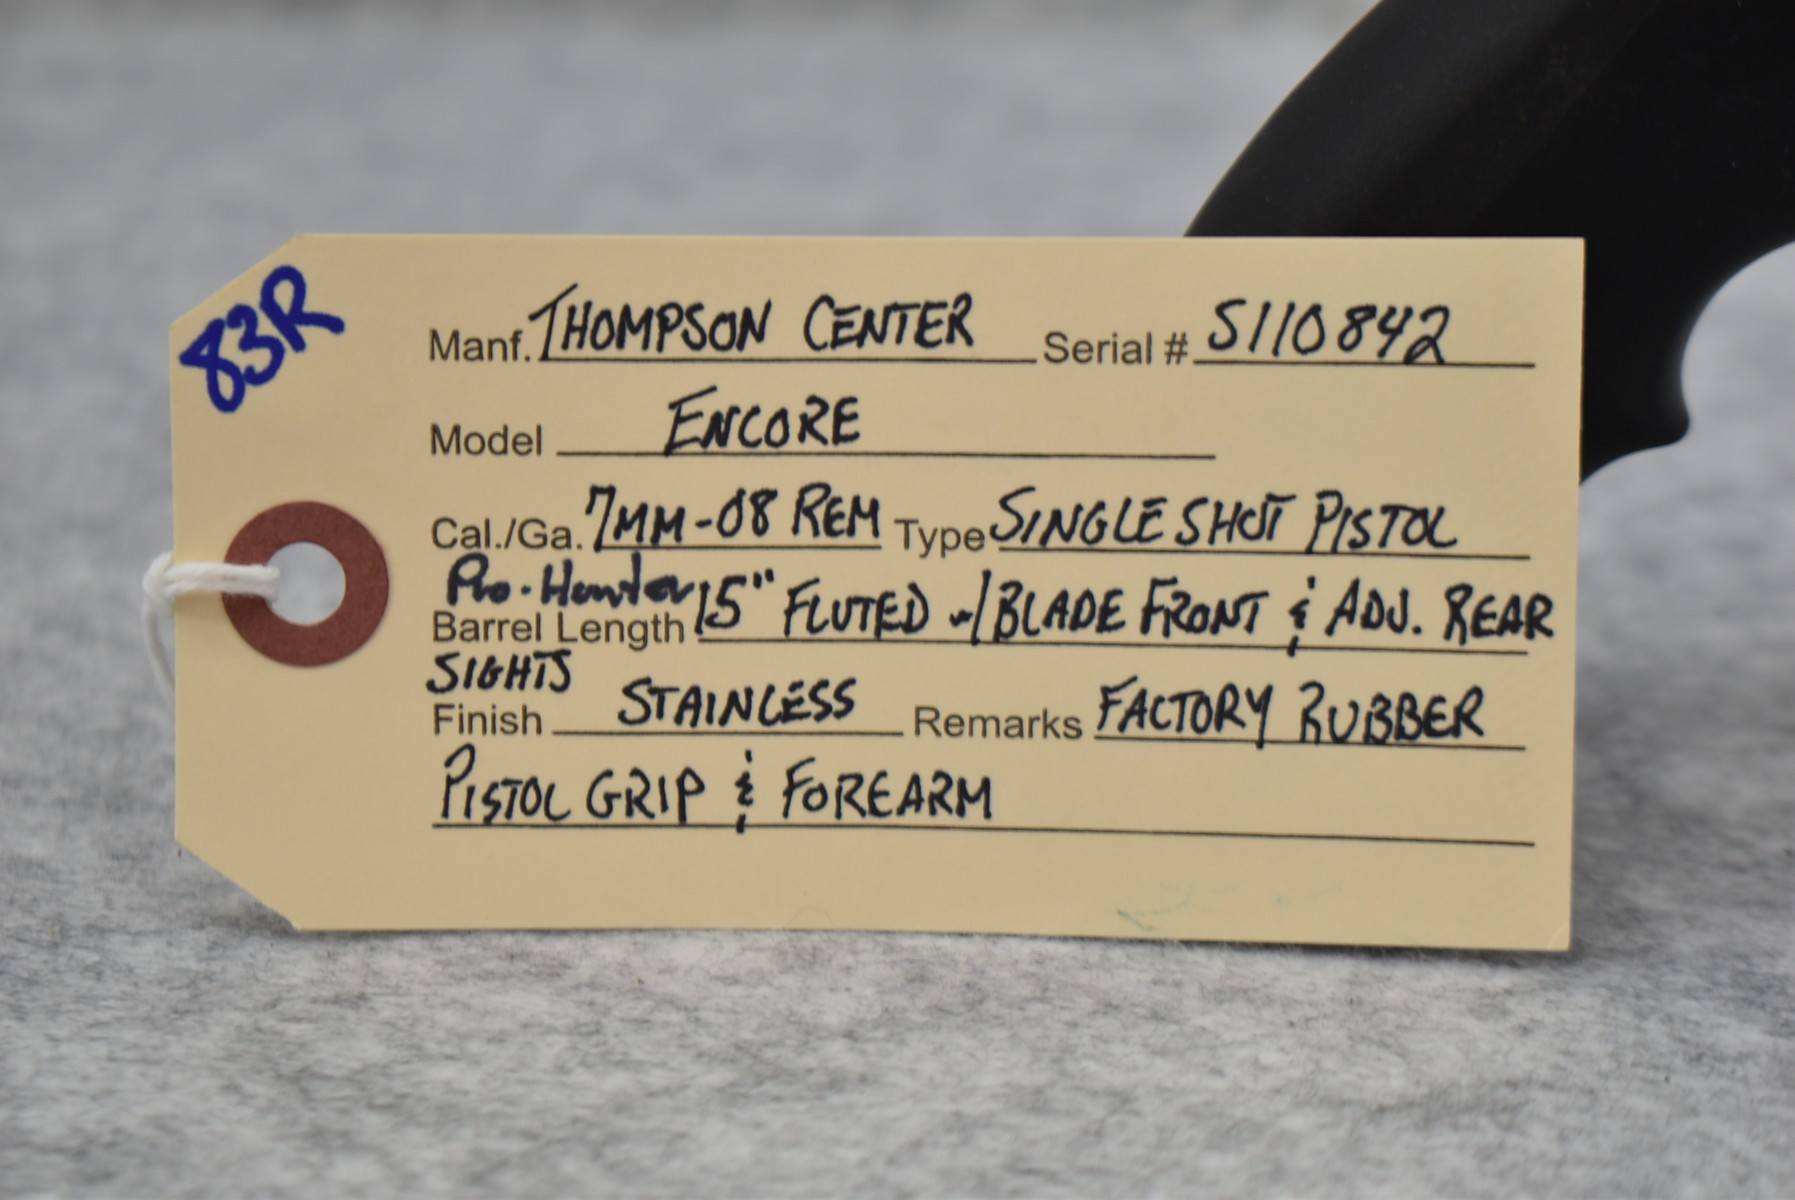 83R
Manf. THOMPSON CENTER Serial # S110842
Model ENCORE
Cal./Ga. 7MM-08 REM Type SINGLE SHOT PISTOL
Pro-Hunter
Barrel Length 15" FLUTED w/ BLADE FRONT & ADJ. REAR
SIGHTS
Finish STAINLESS Remarks FACTORY RUBBER
PISTOL GRIP & FOREARM